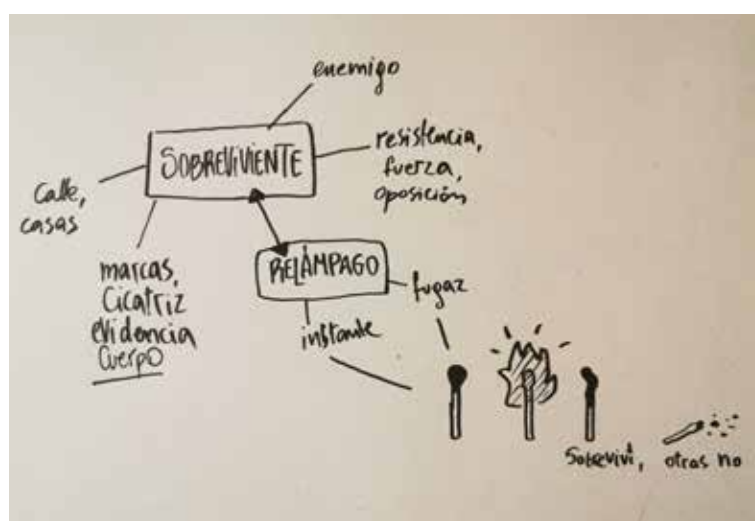 enemigo
SOBREVIVIENTE
resistencia,
fuerza,
oposición
calle,
casas
marcas,
Cicatriz
evidencia
Cuerpo
RELÁMPAGO
fugaz
instante
Sobreviví, otras no